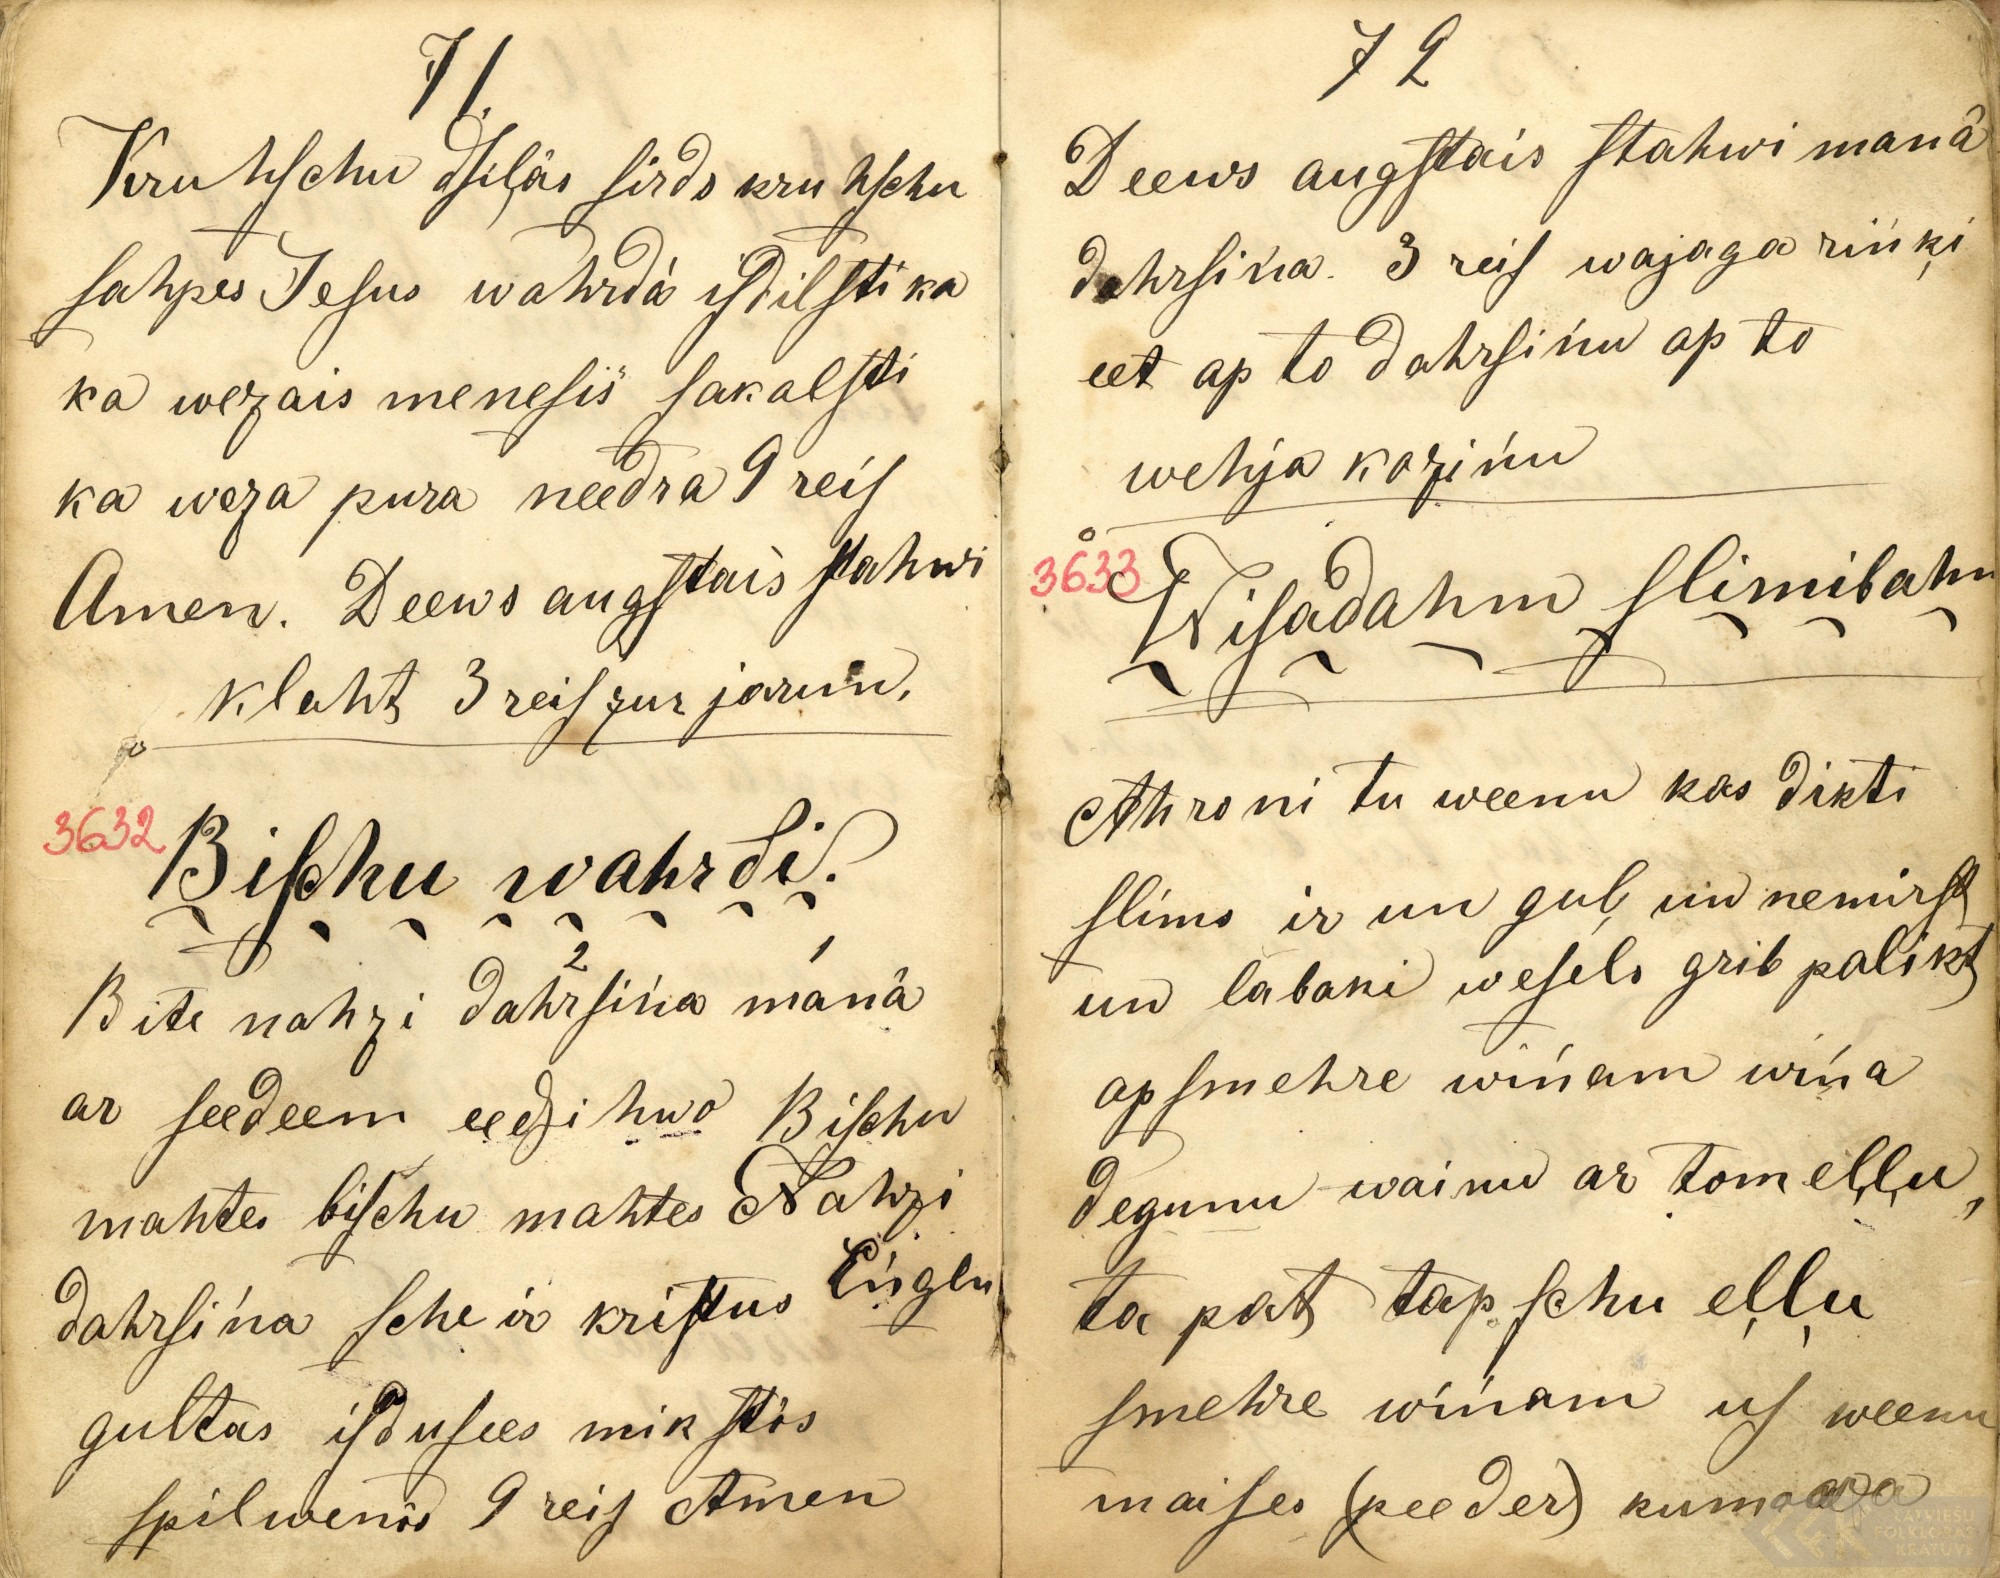 71.
Kruhſchu dſiļás ſirds kruhſchu
ſahpes Jeſus wahrdá iſdilſti ka
ka wezais meneſis ſakalſti
ka weza pura needra 9 reiſ
Amen. Deews augſtais ſtahwi
klaht 3 reiſ zur jarun.
3632
Biſchu wahrdi.
2 1
Bite nahzi dahrſińa manâ
ar ſeedeem eedzihwo Biſchu
mahtes biſchu mahtes Nahzi
dahrſińa ſche ir kriſtus Eńglu
gultas iſduſees mikſtôs
ſpilwenôs 9 reiſ Amen
72
Deews augſtais ſtahwi manâ
dahrſińa. 3 reiſ wajaga rińķi
eet ap to dahrſińu ap to
wehja kozińu
3633
Wiſadahm ſlimibahm
Ahroni tu weenu kas dikti
ſlims ir un guļ un nemirſt
un labaki weſels grib palikt
apſmehre wińam wińa
degunu wainu ar tom eļļu,
ta pat tapſchu eļļu
ſmehre wińam uſ weenu
maiſes (peeder) kumoaſa
LATVIEŠU
FOLKLORAS
KRĀTUVE